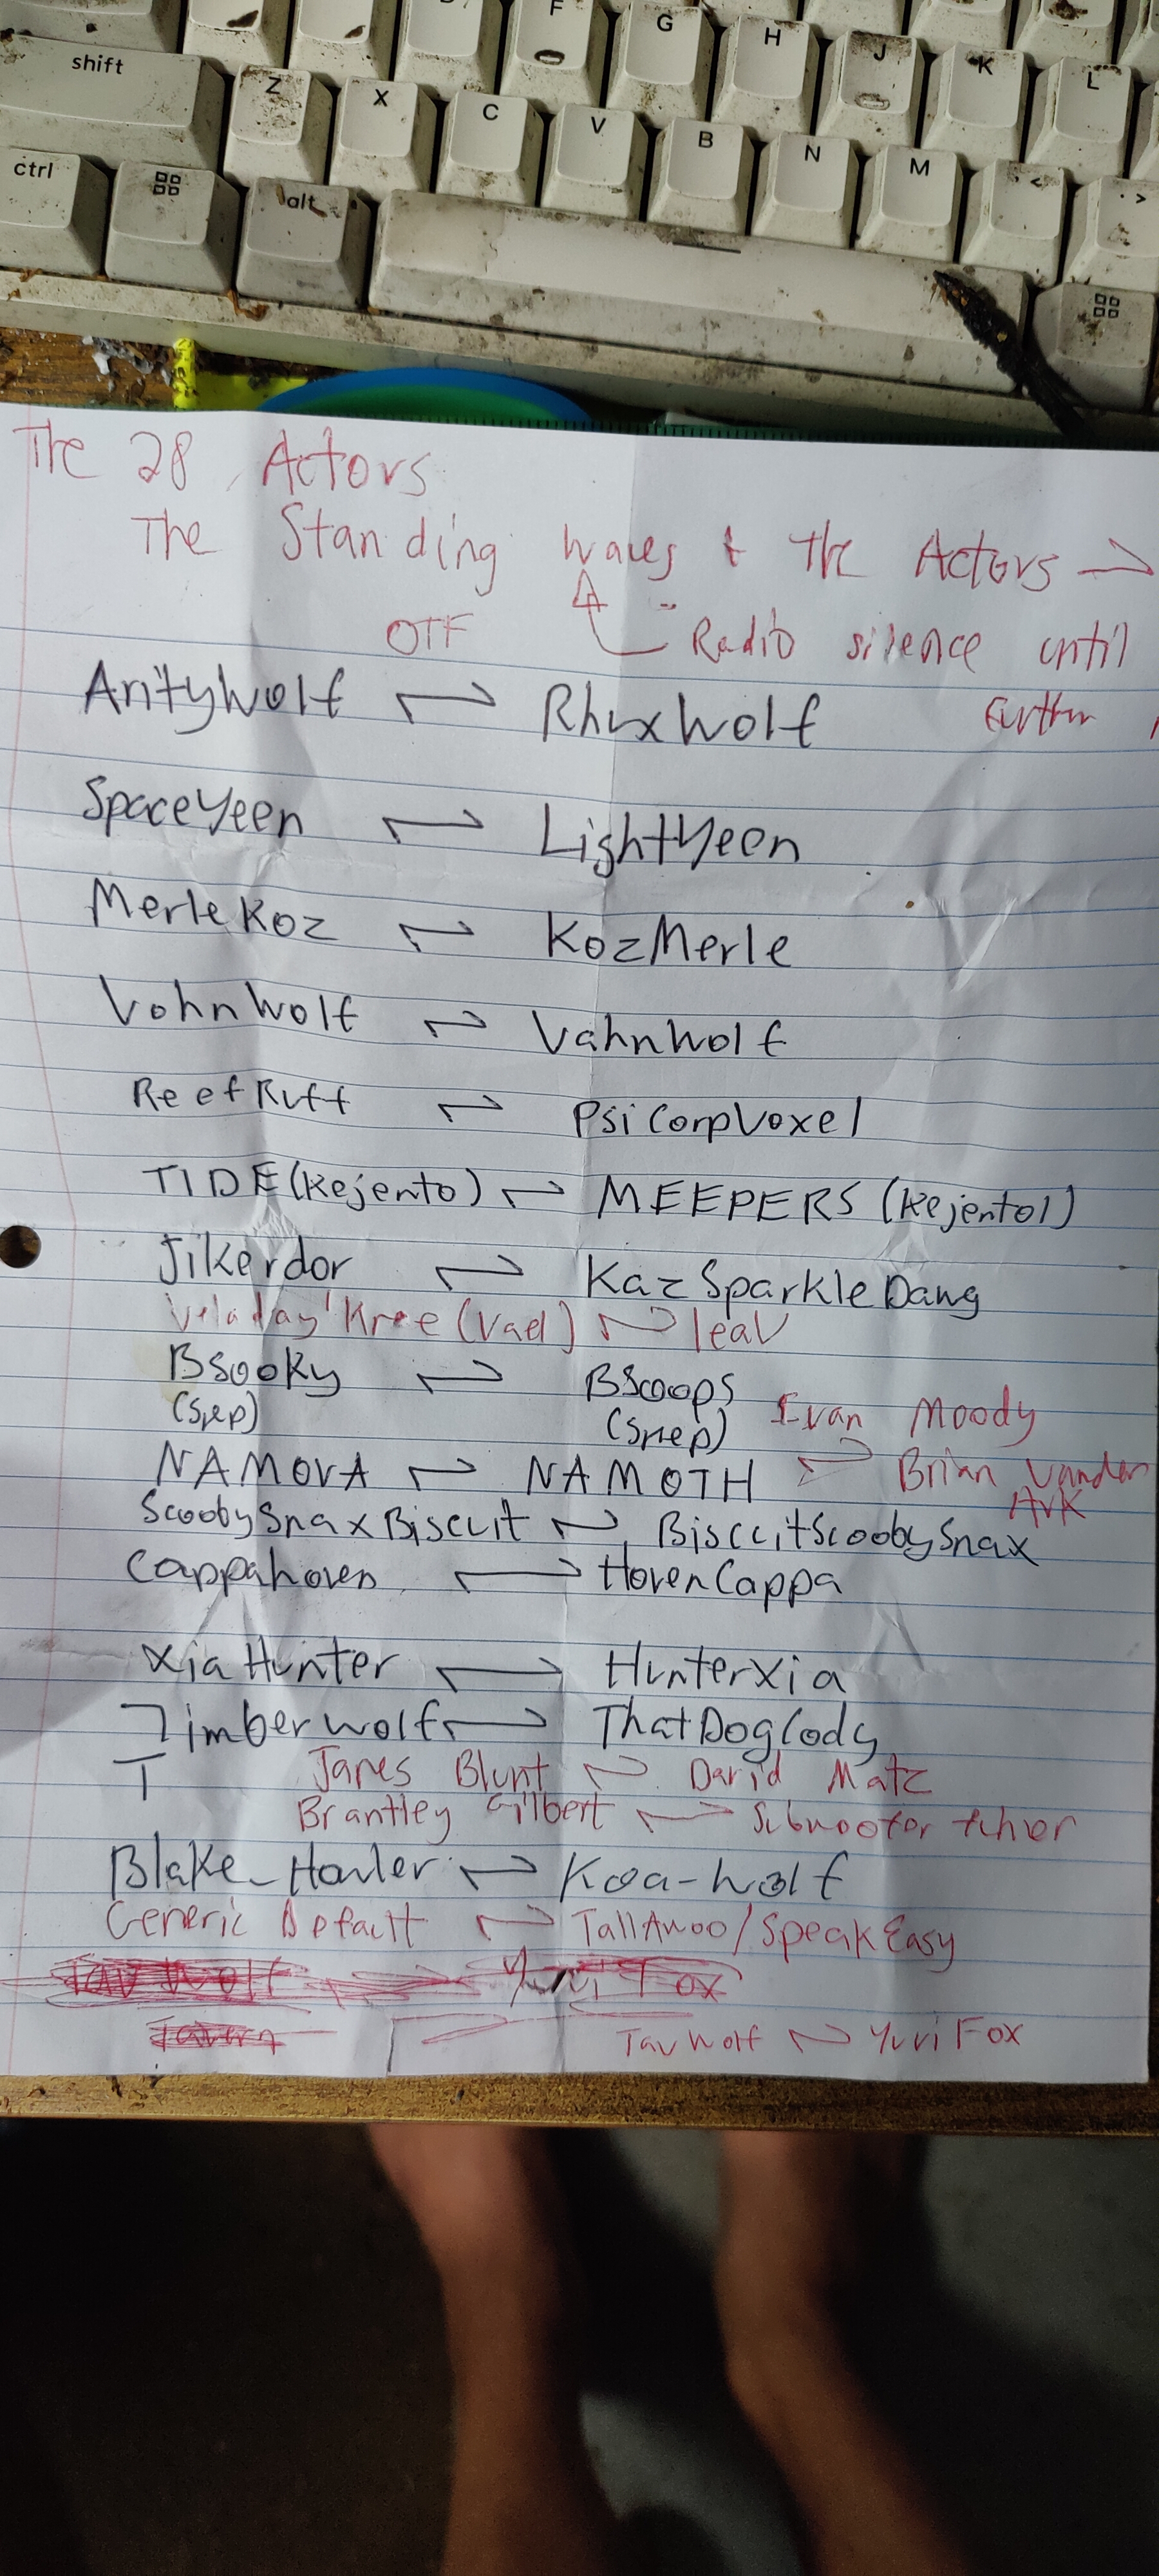 F G H J K L
shift Z X C V B N M < >
ctrl alt
The 28 Actors
The Standing waves + The Actors →
OTF Radio silence until
AntyWolf ⇌ RhuxWolf Further
SpaceYeen ⇌ LightYeen
MerleKoz ⇌ KozMerle
VohnWolf ⇌ VahnWolf
ReefRuff ⇌ PsiCorpVoxel
TIDE(Kejento) ⇌ MEEPERS (Kejento1)
Jikerdor ⇌ KazSparkleDawg
(Vael) ⇌ leaV
BSooky ⇌ BScoops
(Snep) (Snep) Evan Moody
NAMOVA ⇌ NAMOTH ⇌ Brian Vander
Ark
ScoobySnaxBiscuit ⇌ BiscuitScoobySnax
Cappahoven ⇌ HovenCappa
XiaHunter ⇌ HunterXia
Timberwolf ⇌ ThatDogCody
T James Blunt ⇌ David Matz
Brantley Gilbert ⇌ Subwoofer
Blake_Howler ⇌ Koa-wolf
Generic Default ⇌ TallAwoo/SpeakEasy
Tav Wolf Yuri Fox
Tav Wolf ⇌ Yuri Fox